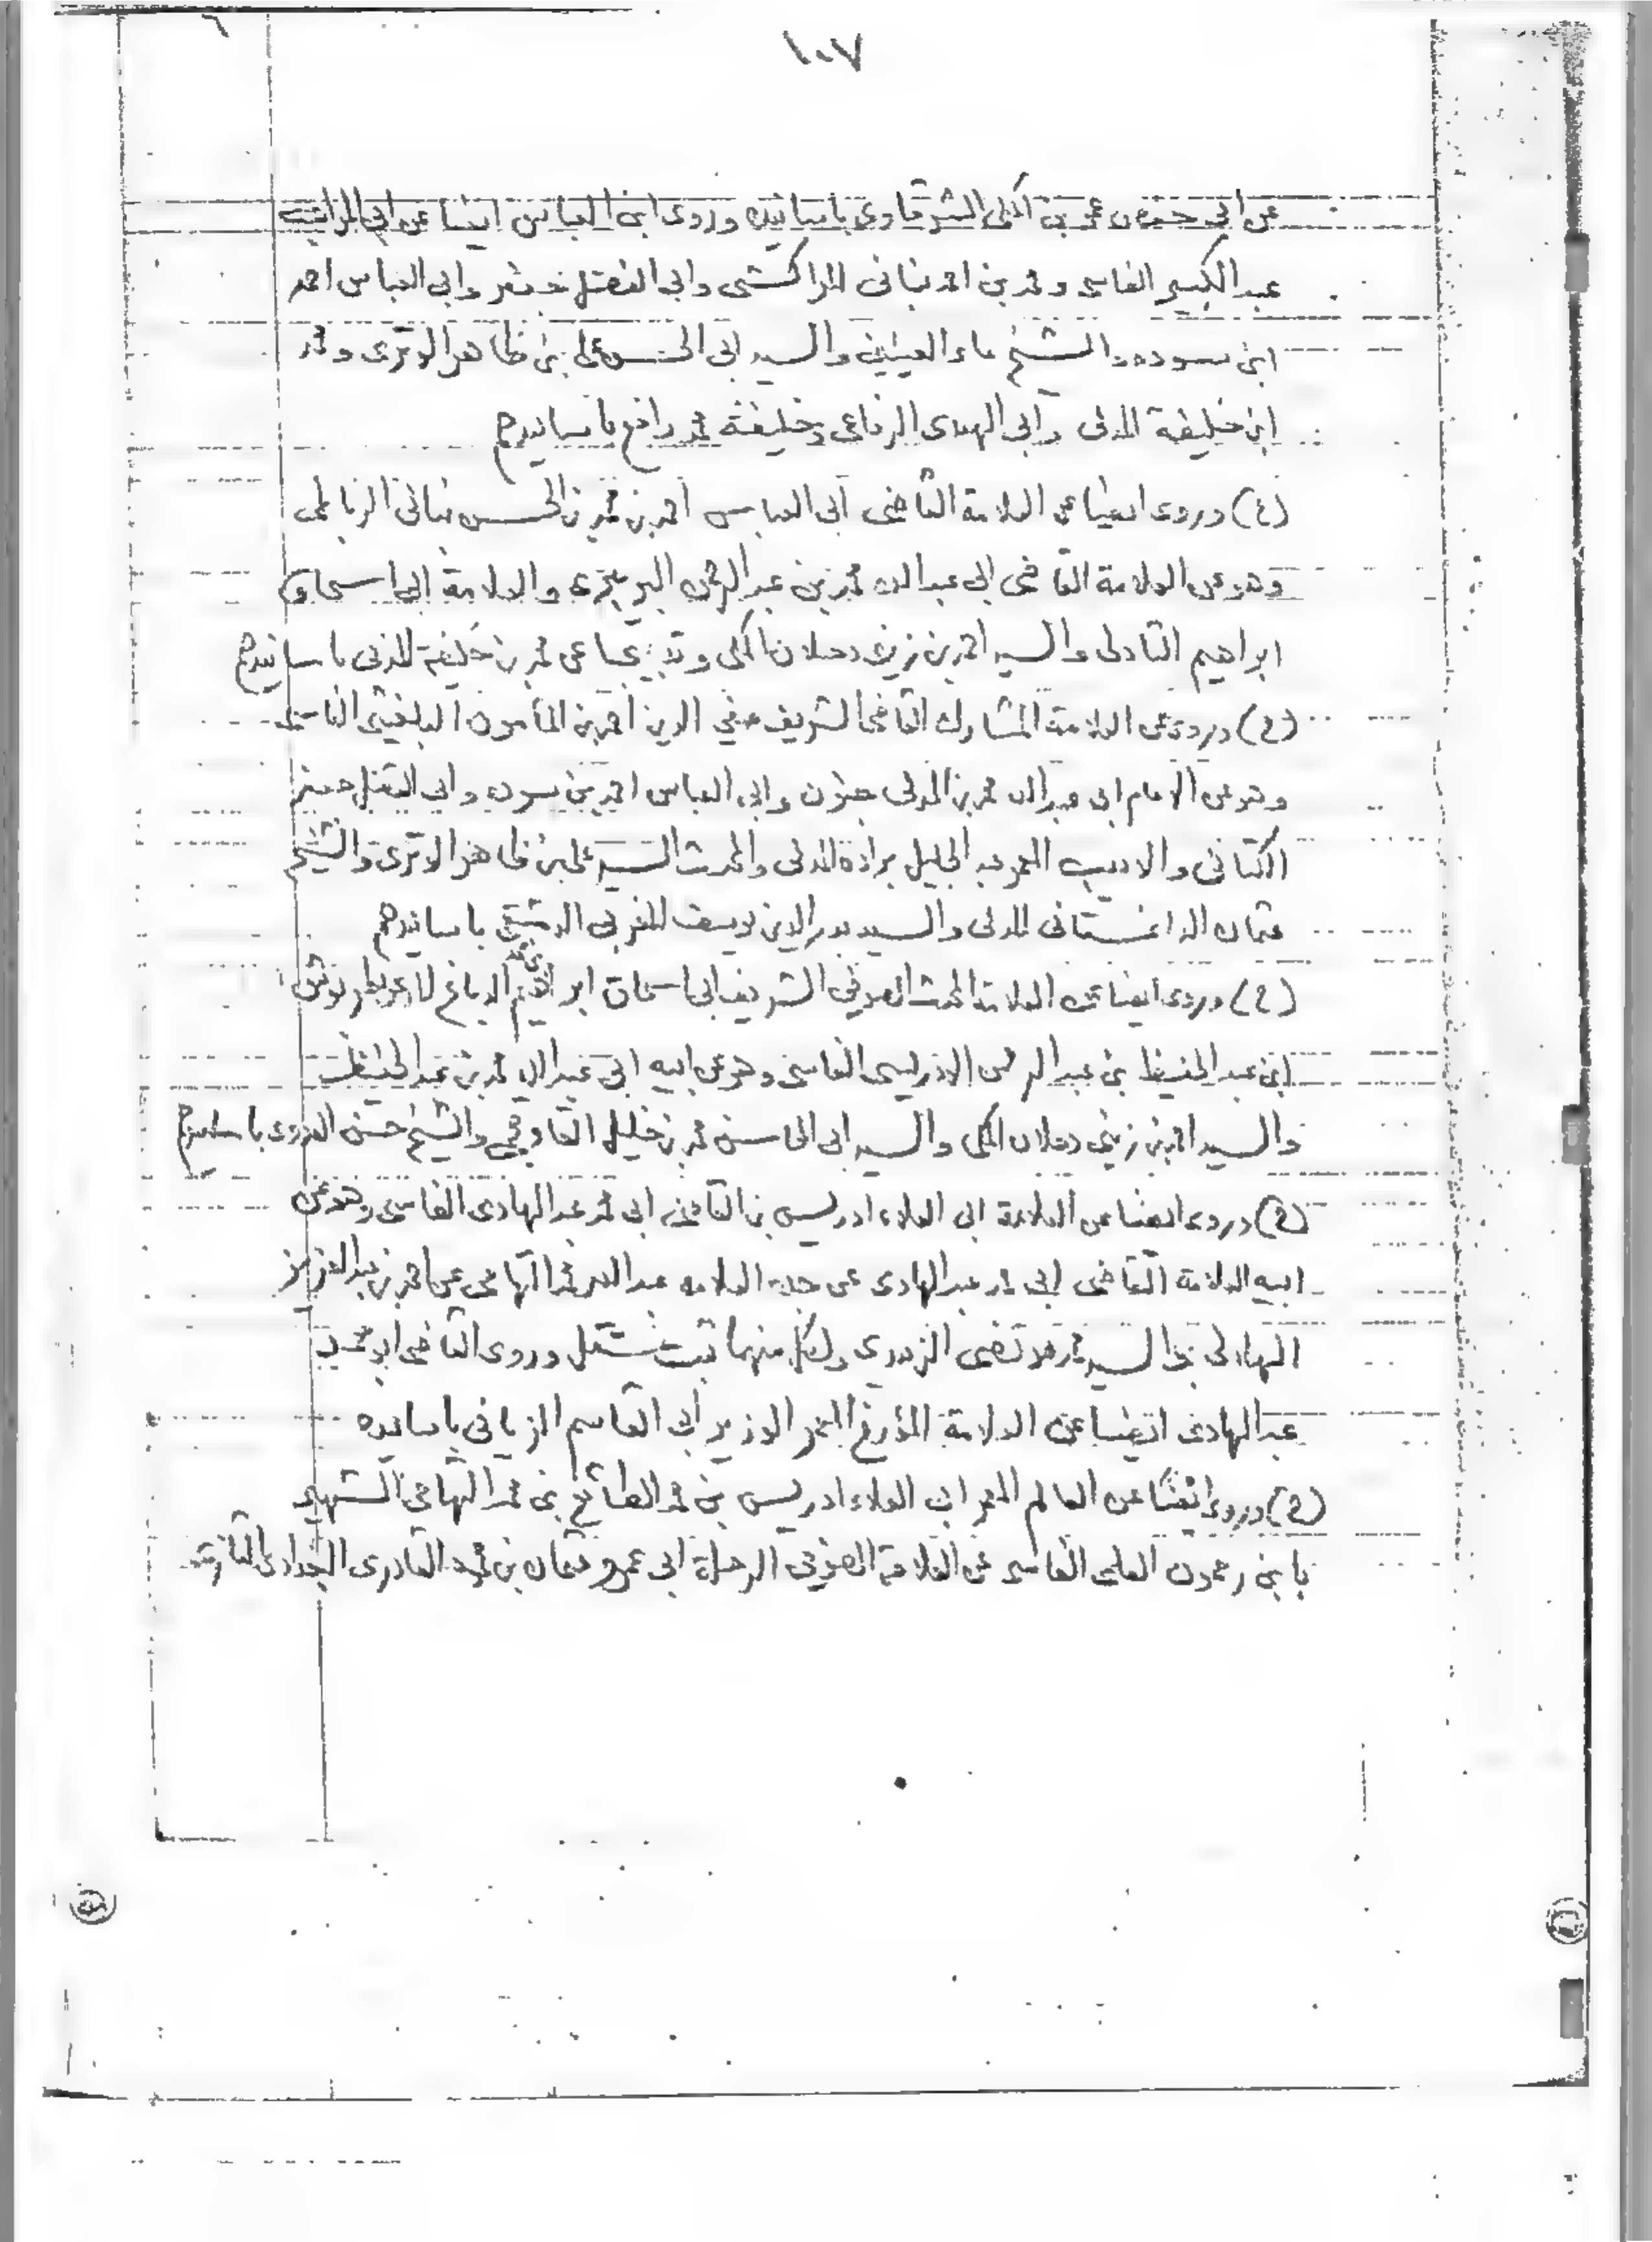 ١٠٧
عن ابي حفص عمر بن المكي الشرقاوي باسانيده وروى ابو العباس ايضا عن ابي المواهب
عبد الكبير الفاسي ومحمد بن احمد بناني المراكشي وابي الفضل جعفر وابي العباس احمد
ابن سوده والشيخ ماء العينين والسيد ابي الحسن علي بن ظاهر الوتري ومحمد
ابن خليفة المدني وابي الهدى الرفاعي وخليفة محمد رافع باسانيدهم
(٤) وروى ايضا عن العلامة القاضي ابي العباس احمد بن محمد بن الحسن بناني الرباطي
وهو عن العلامة القاضي ابي عبد الله محمد بن عبد الرحمن البريبري والعلامة ابي اسحاق
ابراهيم التادلي والسيد احمد بن زيني دحلان المكي وتدبيجا عن محمد بن خليفة المدني باسانيدهم
(٤) وروى عن العلامة المشارك القاضي الشريف صفي الدين احمد بن المأمون البلغيثي الفاسي
وهو عن الامام ابي عبد الله محمد بن المدني جنون وابي العباس احمد بن سوده وابي الفضل جعفر
الكتاني والاديب المعمر عبد الجليل برادة المدني والمحدث السيد علي بن ظاهر الوتري والشيخ
عثمان الداغستاني المدني والسيد بدر الدين يوسف المغربي الدمشقي باسانيدهم
(٤) وروى ايضا عن العلامة المحدث الصوفي الشريف ابي اسحاق ابراهيم الدباغ
ابن عبد الحفيظ بن عبد الرحمن الادريسي الفاسي وهو عن ابيه ابي عبد الله محمد بن عبد الحفيظ
والسيد احمد بن زيني دحلان المكي والسيد ابي المحاسن محمد بن خليل القاوقجي والشيخ حسن العدوي باسانيدهم
(٤) وروى ايضا عن العلامة ابي العلاء ادريس بن القاضي ابي محمد عبد الهادي الفاسي وهو عن
ابيه العلامة القاضي ابي محمد عبد الهادي عن جده العلامة عبد الله بن التهامي عن احمد بن عبد العزيز
الهلالي والسيد محمد مرتضى الزبيدي ولكل منهما ثبت مستقل وروى القاضي ابو محمد
عبد الهادي ايضا عن العلامة المؤرخ المعمر الوزير ابي القاسم الزياني باسانيده
(٤) وروى ايضا عن العالم المعمر ابي العلاء ادريس بن محمد الطائع بن محمد التهامي الشهير
بابن رحمون العلمي الفاسي عن العلامة الصوفي الرحلة ابي عمرو عثمان بن محمود القادري البغدادي